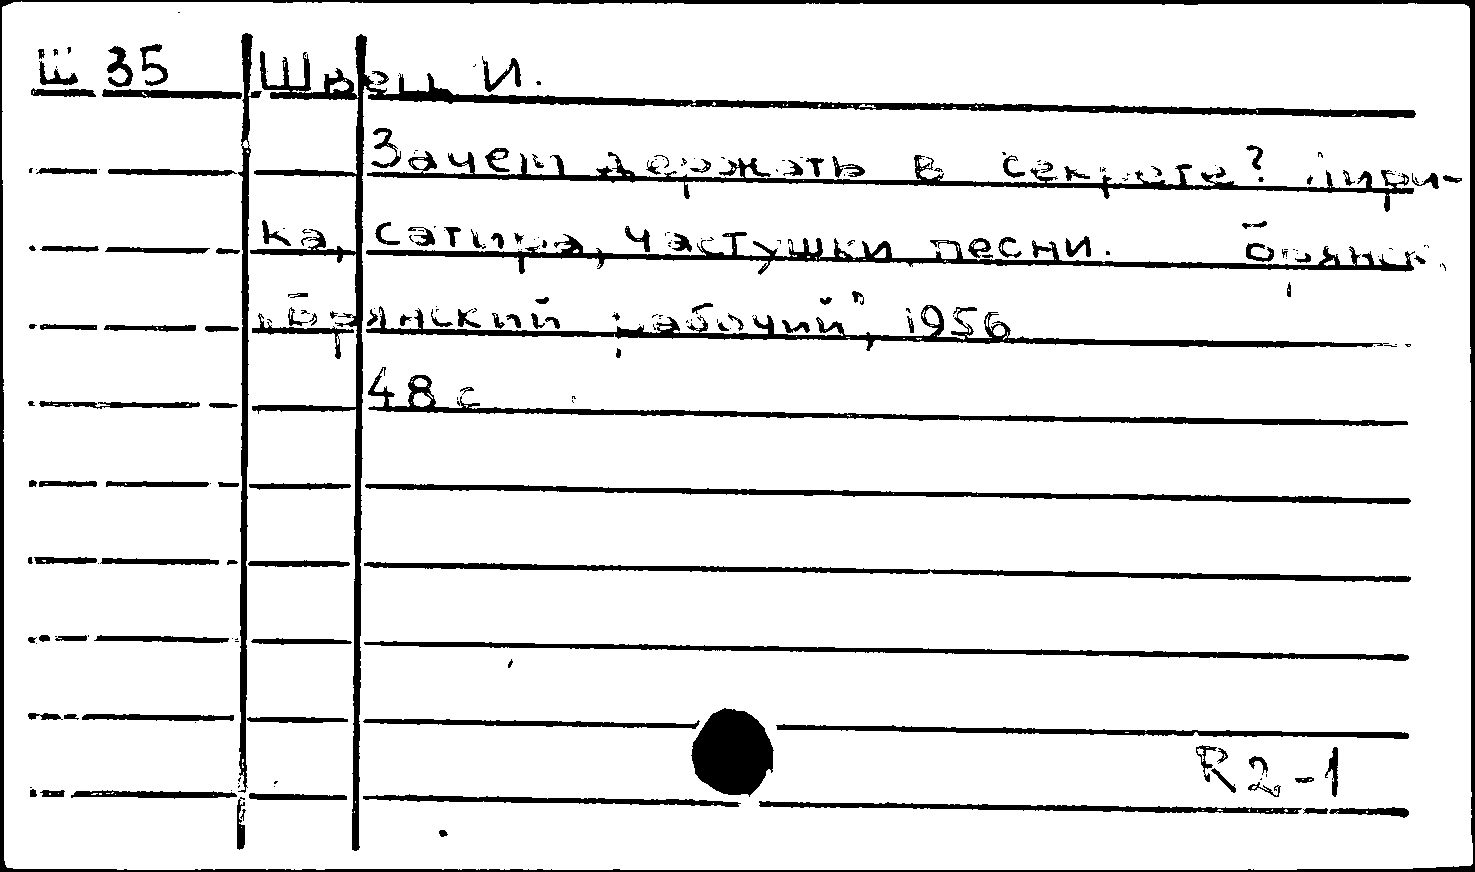 Ш 35 Швец И.
Зачем держать в секрете? Лири-
ка, сатира, частушки, песни. Брянск,
„Брянский рабочий", 1956
48 с
R2-1